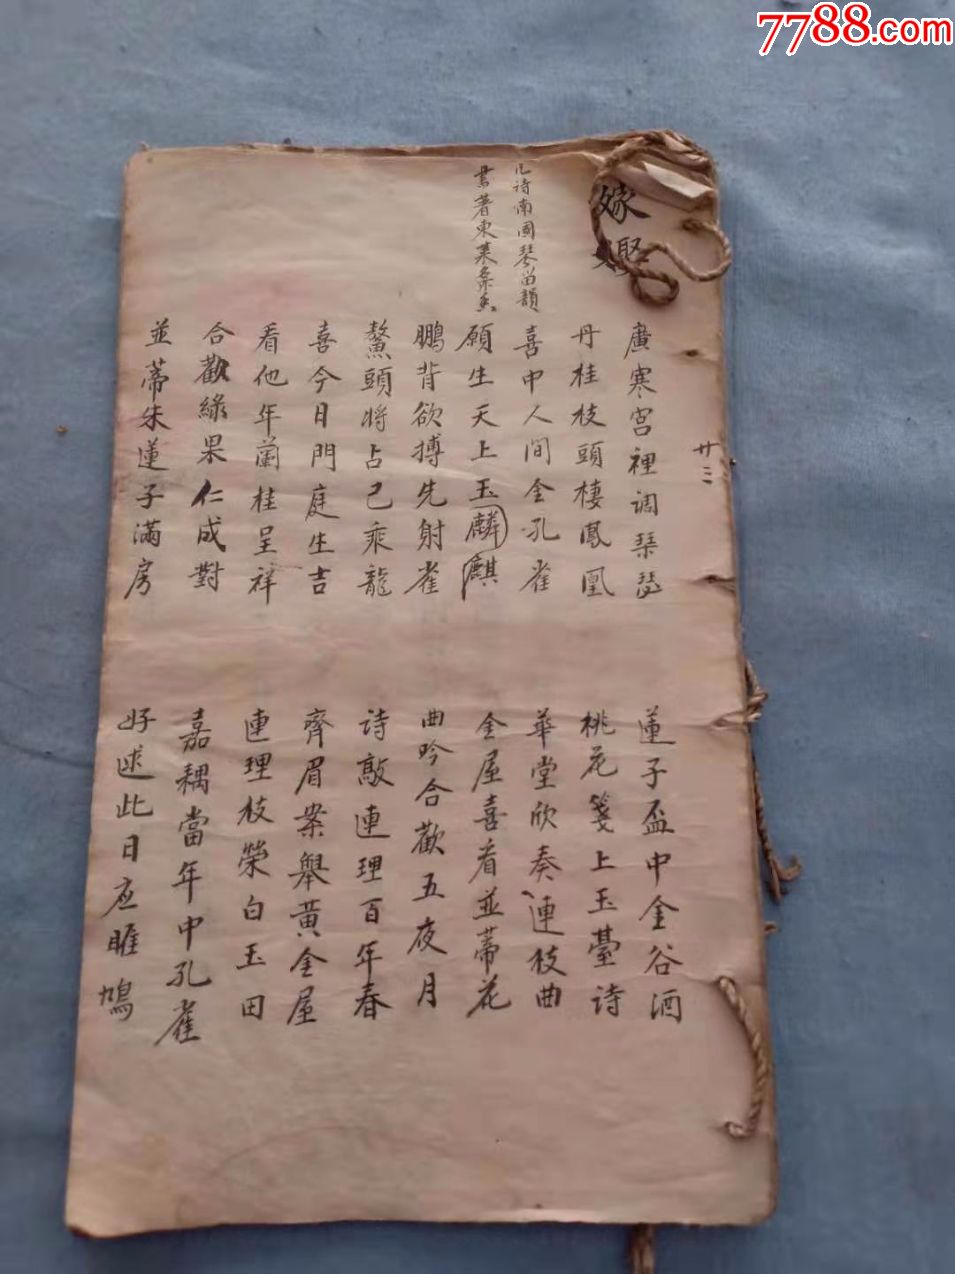 7788.com
嫁
娶
廿三
詩南國琴
書著東萊
廣寒宮裡调琹瑟
丹桂枝頭棲鳳凰
喜中人间金孔雀
願生天上玉麟麒
鵬背欲搏先射雀
鰲頭将占已乘龍
喜今日門庭生吉
看他年蘭桂呈祥
合歡綠果仁成對
並蒂朱蓮子滿房
蓮子盃中金谷酒
桃花箋上玉臺诗
華堂欣奏連枝曲
金屋喜看並蒂花
曲吟合歡五夜月
诗敲連理百年春
齊眉案舉黃金屋
連理枝榮白玉田
嘉耦當年中孔雀
好逑此日应雎鳩